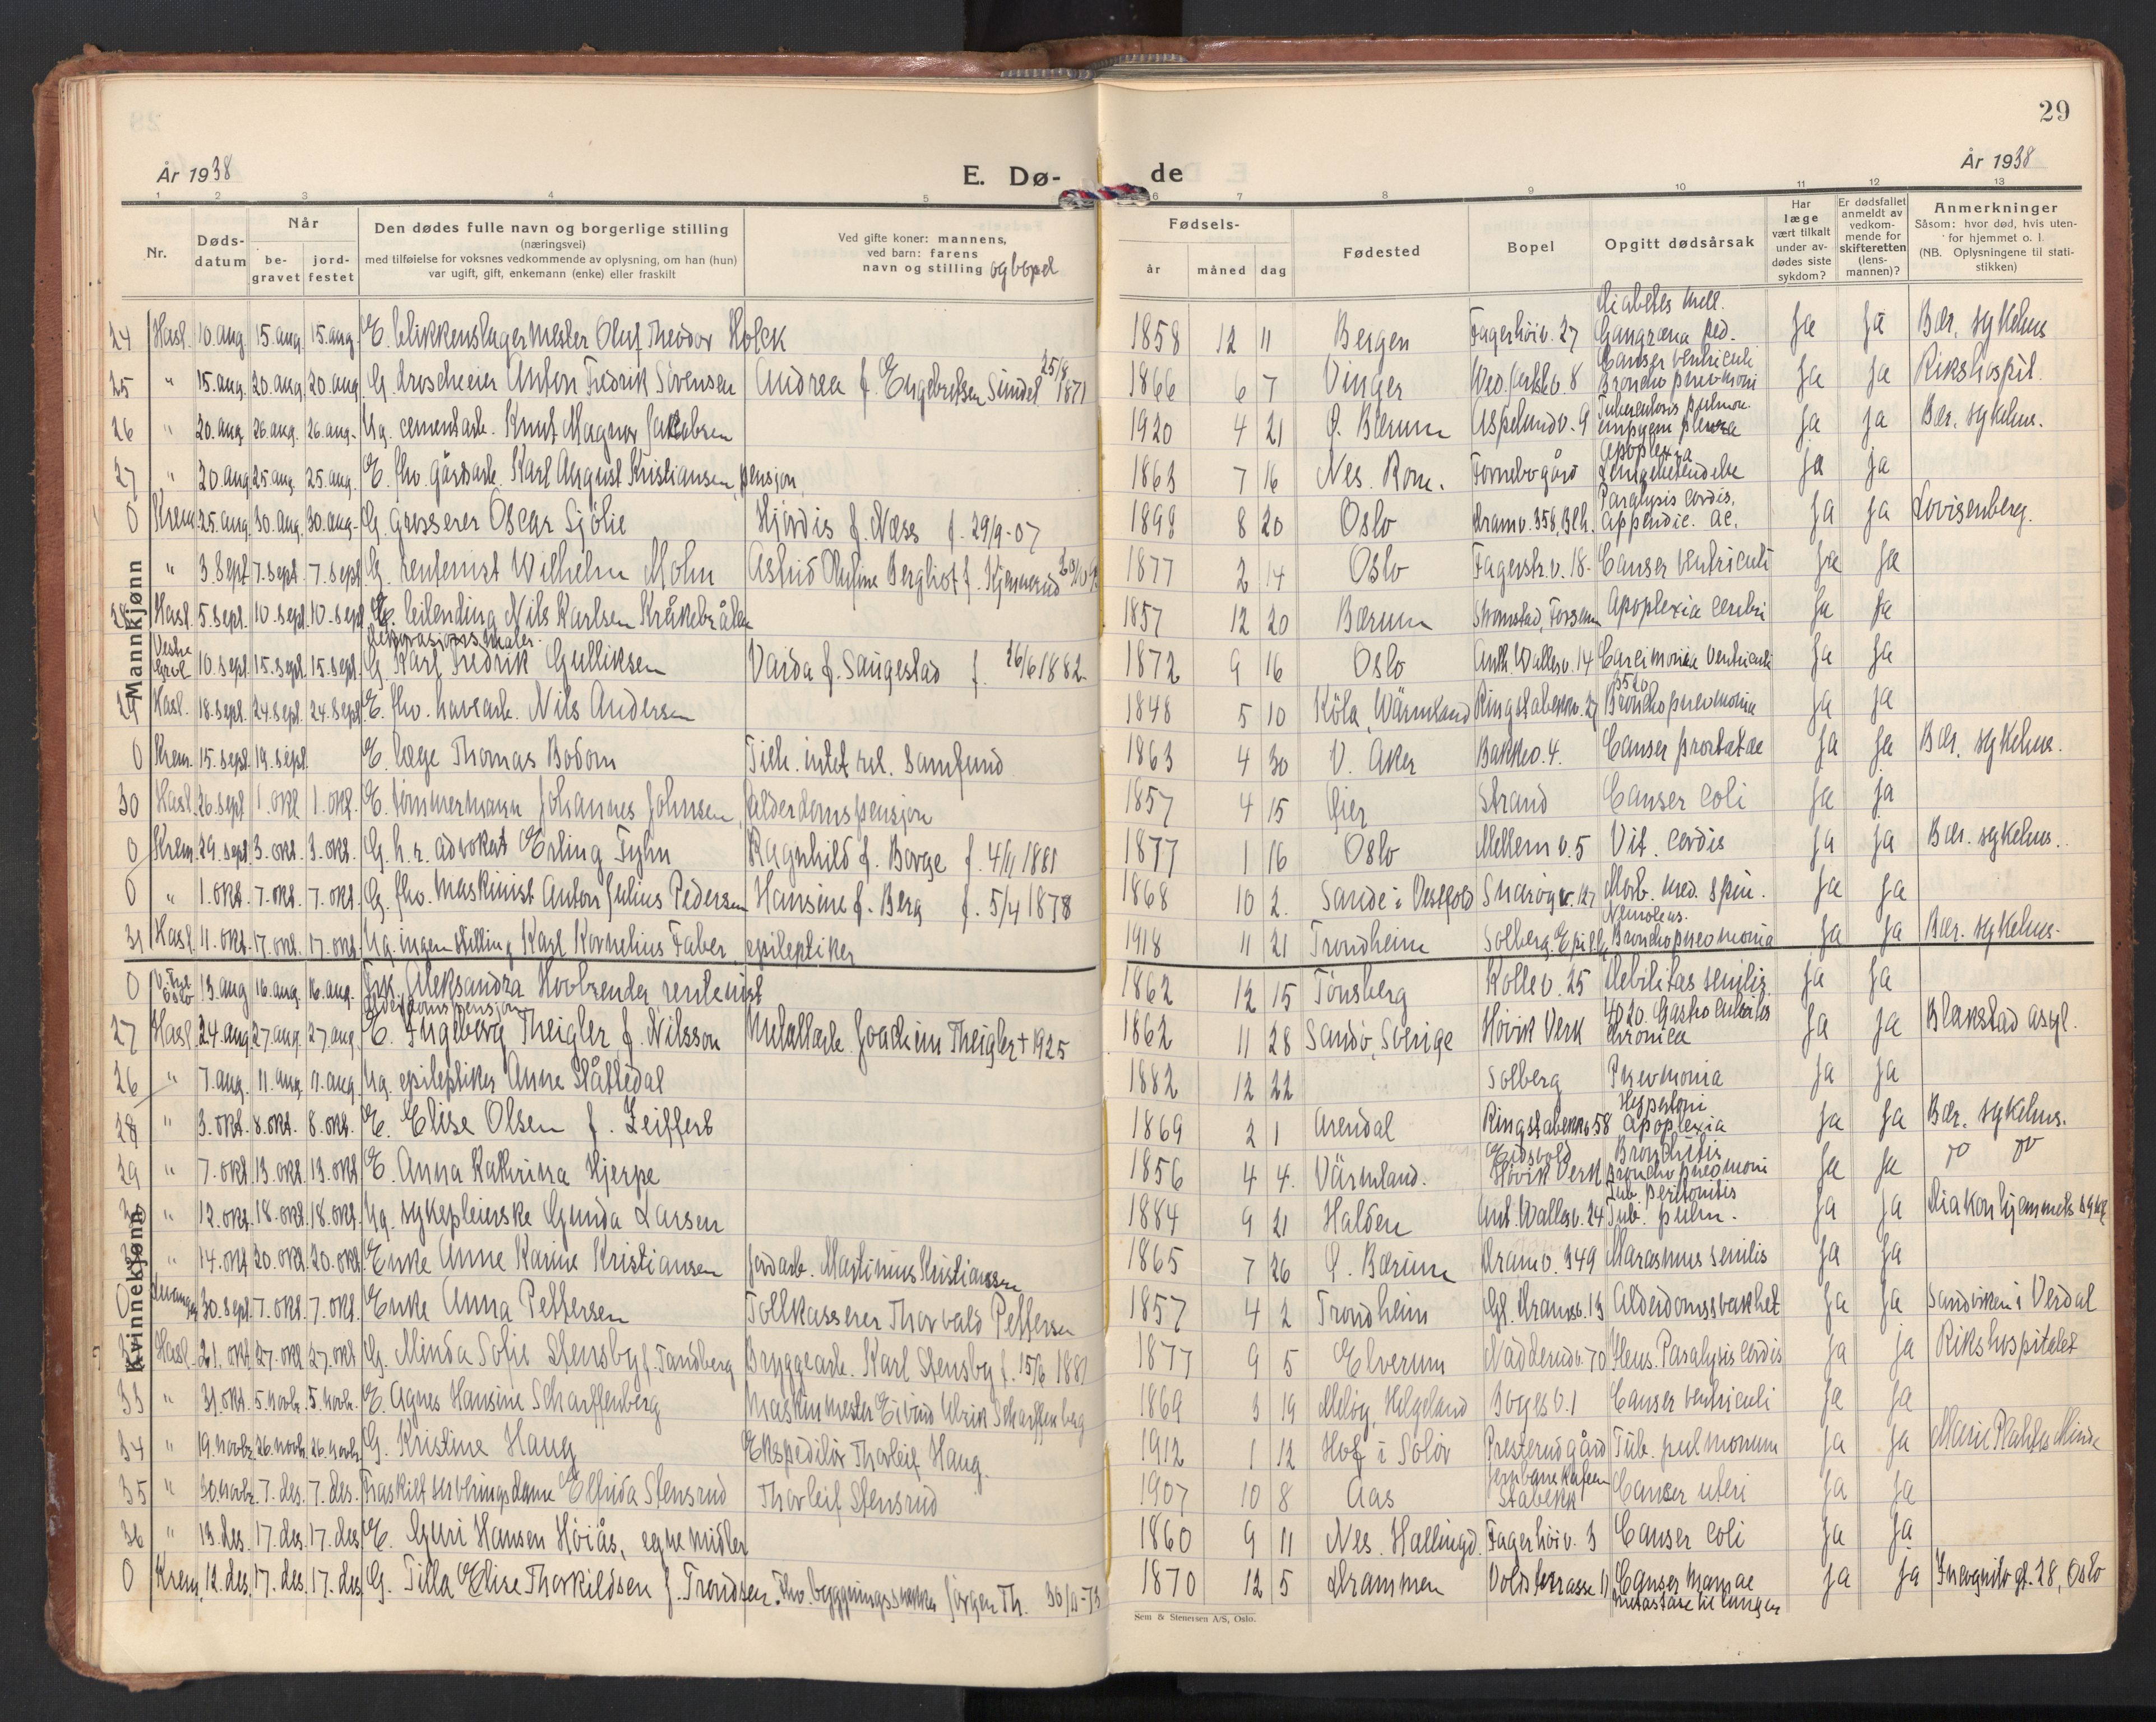 29
År 1938
E. Dø-
de
År 1938
1 2 3 4 5 6 7 8 9 10 11 12 13
Nr.
Døds-
datum
Når
be-
gravet
jord-
festet
Den dødes fulle navn og borgerlige stilling
(næringsvei)
med tilføielse for voksnes vedkommende av oplysning, om han (hun)
var ugift, gift, enkemann (enke) eller fraskilt
Ved gifte koner: mannens,
ved barn: farens
navn og stilling og bopel
Fødsels-
år måned dag
Fødested
Bopel
Opgitt dødsårsak
Har
læge
vært tilkalt
under av-
dødes siste
sykdom?
Er dødsfallet
anmeldt av
vedkom-
mende for
skifteretten
(lens-
mannen)?
Anmerkninger
Såsom: hvor død, hvis uten-
for hjemmet o. l.
(NB. Oplysningene til stati-
stikken)
Mannkjønn
24 Hasl. 10. aug. 15. aug. 15. aug. E. blikkenslagermester Oluf Theodor Holck 1858 12 11 Bergen Fagerhøiv. 27 Diabetes mell. Gangræna ped. Ja Ja Bær. sykehus
25 " 15. aug. 20. aug. 20. aug. G. droscheeier Anton Fredrik Sörensen Andrea f. Engebretsen Sundet 25/8 1871 1866 6 7 Vinger 8 Canser ventriculi Bronchopneumoni Ja Ja Rikshospit.
26 " 20. aug. 26. aug. 26. aug. Ug. cementarb. Knut Magnor Jakobsen 1920 4 21 Ø. Bærum Aspelundv. 9 Tuberculosis pulmon. empyem pleura Ja Ja Bær. sykehus.
27 " 20. aug. 25. aug. 25. aug. E. fhv. gårdsarb. Karl August Kristiansen, pensjon. 1863 7 16 Nes. Rom. Fornebogård Apoplexia Lungebetendelse Ja Ja
0 Krem. 25. aug. 30. aug. 30. aug. G. grosserer Oscar Sjölie Hjördis f. Næss f. 29/9-07 1898 8 20 Oslo Dramv. 358, Blh. Paralysis cordis. Appendic. ac. Ja Ja Lovisenberg.
" 3. Sept. 7. sept. 7. sept. G. rentenist Wilhelm Mohn Astrid Oluline Bergliot f. Kjennerud 1877 2 14 Oslo Fagerstr.v. 18. Canser ventriculi Ja Ja
28 Hasl. 5. sept. 10. sept. 10. sept. E. leilending Nils Karlsen Kråkebråten 1857 12 20 Bærum Apoplexia cerebri Ja Ja
Vestre Grvl. 10. sept. 15. sept. 15. sept. dekorasjonsmaler. G. Karl Fredrik Gulliksen Varda f. Saugestad f. 26/6 1882. 1872 9 16 Oslo Anth. Wallesv. 14 Carcimonia Ventriculi Ja Ja
29 Hasl. 18. sept. 24. sept. 24. sept. E. fhv. havearb. Nils Andersen 1848 5 10 Köla, Wärmland Ringstabekkv. 27 Bronchopneomonia Ja Ja
0 Krem. 15. sept. 19. sept. E. læge Thomas Bodom Tilh. intet rel. samfund 1863 4 30 V. Aker Bakkev. 4. Canser prostatae Ja Ja Bær. sykehus.
30 Hasl. 26. sept. 1. okt. 1. okt. E. tömmermann Johannes Johnsen, alderdomspensjon 1857 4 15 Øier Strand Canser coli Ja Ja
0 Krem. 29. sept. 3. okt. 3. okt. G. h. r. advokat Erling Fyhn Ragnhild f. Borge f. 4/11 1881 1877 1 16 Oslo Mellemv. 5 Vit. cordis Ja Ja Bær. sykehus.
0 " 1. okt. 7. okt. 7. okt. G. fhv. maskinist Anton Julius Pedersen Hansine f. Berg f. 5/4 1878 1868 10 2. Sande i Vestfold Snaröyv. 127 Morb. med. spin. Ja Ja
31 Hasl. 11. okt. 17. okt. 17. okt. Ug. ingen stilling Karl Kornelius Faber, epileptiker 1918 11 21 Trondheim Solberg. Bronchopneomonia Ja Ja Bær. sykehus.
Kvinnekjønn
0 13. aug 16. aug. 16. aug. Frk. Aleksandra Hovbrender rentenist 1862 12 15 Tönsberg Kollev. 25 Debilitas senilis. Ja Ja
27 Hasl. 24. aug. 27. aug. 27. aug. Alderdomspensjon E. Ingeborg Theigler f. Nilsson Metallarb. Joachim Theigler + 1925 1862 11 28 Sandö, Sverige Hövik Verk Gastro enterites chronica Ja Ja Blakstad asyl.
26 " 7. aug. 11. aug. 11. aug. Ug. epileptiker Anna Slåttedal 1882 12 22 Solberg Pneomonia Ja Ja
28 " 3. okt. 8. okt. 8. okt. E. Elise Olsen f. Zeiffert 1869 2 1 Arendal Ringstabekkv. 58 Hypertoni Apoplexia Ja Ja Bær. sykehus.
29 " 7. okt. 13. okt. 13. okt. E. Anna Kathrina Hjerpe 1856 4 4. Värmland. Eidsvold Hövik Verk Bronchitis Bronchopneomoni Ja Ja
" 12. okt. 18. okt. 18. okt. Ug. sykepleierske Gunda Larsen 1884 9 21 Halden Ant. Wallesv. 24 Tub. peritonitis Tub. pulm. Ja Ja Diakonhjemmets syke
" 14. okt. 20. okt. 20. okt. Enke Anne Karine Kristiansen Jordarb. Martinius Kristianssen 1865 7 26 Ø. Bærum Dramv. 349 Marasmus senilis Ja Ja
0 30. sept. 7. okt. 7. okt. Enke Anna Pettersen Tollkasserer Thorvald Pettersen 1857 4 2 Trondheim Gl. Dramsv. 13 Alderdomssvakhet Ja Ja Sandviken i Verdal
Hasl. 21. okt. 27. okt. 27. okt. G. Minda Sofie Stensby f. Tandberg Bryggearb. Karl Stensby f. 15/6 1881 1877 9 5 Elverum Nadderudv. 70 Ileus. Paralysis cordis Ja Ja Rikshospitalet
33 " 31. okt. 5. novbr. 5. novbr. E. Agnes Hansine Scharffenberg Maskinmester Eivind Ulrik Scharffenberg 1869 3 19 Melöy, Helgeland Bogesv. 1 Canser ventriculi Ja Ja
34 " 19. novbr. 26. novb. 26. novb. G. Kristine Haug Ekspeditör Thorleif Haug. 1912 1 12 Hof i Solör Presterudgård Tub. pulmonum Ja Ja Marie Plahtes Minde
35 " 30. novbr. 7. des. 7. des. Fraskilt serveringsdame Elfrida Stensrud Thorleif Stensrud 1907 10 8 Aas Jernbanekafeen Stabekk Canser uteri Ja Ja
36 " 13. des. 17. des. 17. des. E. Guri Hansen Höiås, egne midler 1860 9 11 Nes. Hallingd. Fagerhöiv. 3 Canser coli Ja Ja
0 Krem. 12. des. 17. des. 17. des. G. Tilla Elise Thorkildsen f. Trondsen. Fhv. byggningssnekker Jörgen Th. 30/11-73 1870 12 5 Drammen Voldsterrasse 11 Canser mamae metastase til lungen Ja Ja Incognito gt. 28, Oslo
Sem & Stenersen A/S, Oslo.